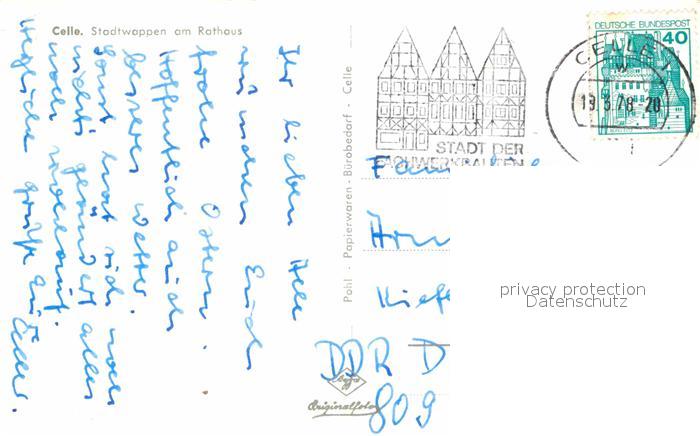 Celle. Stadtwappen am Rathaus
Ihr lieben Alle
wünschen Euch
frohe Ostern.
Hoffentlich auch
besseres Wetter.
sonst hat sich noch
nichts geändert alles
noch
Grüße aus Celle.
Pohl - Papierwaren - Bürobedarf - Celle
STADT DER
FACHWERKBAUTEN
DEUTSCHE BUNDESPOST
40
CELLE 1
19.3.78-20
Fam
DDR D
809
Agfa
Originalfoto
privacy protection
Datenschutz